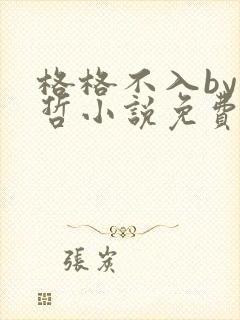 格格不入by
哲小說免費
張炭